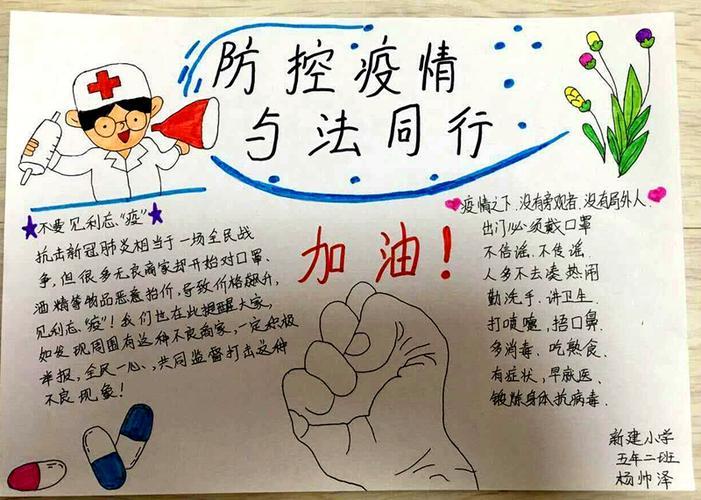 防控疫情
与法同行
不要见利忘“疫”
抗击新冠肺炎相当于一场全民战
争,但很多无良商家却开始对口罩、
酒精等物品恶意抬价,导致价格飙升,
见利忘“疫”!我们也在此提醒大家,
如发现周围有这种不良商家,一定积极
举报,全民一心、共同监督打击这种
不良现象!
加油!
疫情之下,没有旁观者,没有局外人.
出门必须戴口罩
不信谣.不传谣.
人多不去凑热闹
勤洗手.讲卫生.
打喷嚏,捂口鼻.
多消毒.吃熟食.
有症状,早就医、
锻炼身体抗病毒.
新建小学
五年二班
杨帅泽